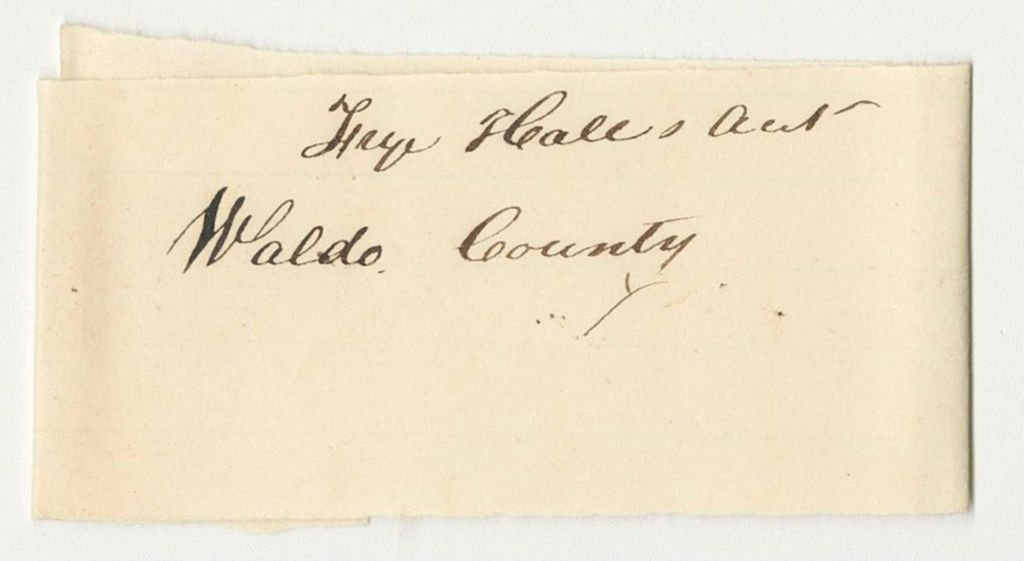 Frye Halls Act
Waldo County